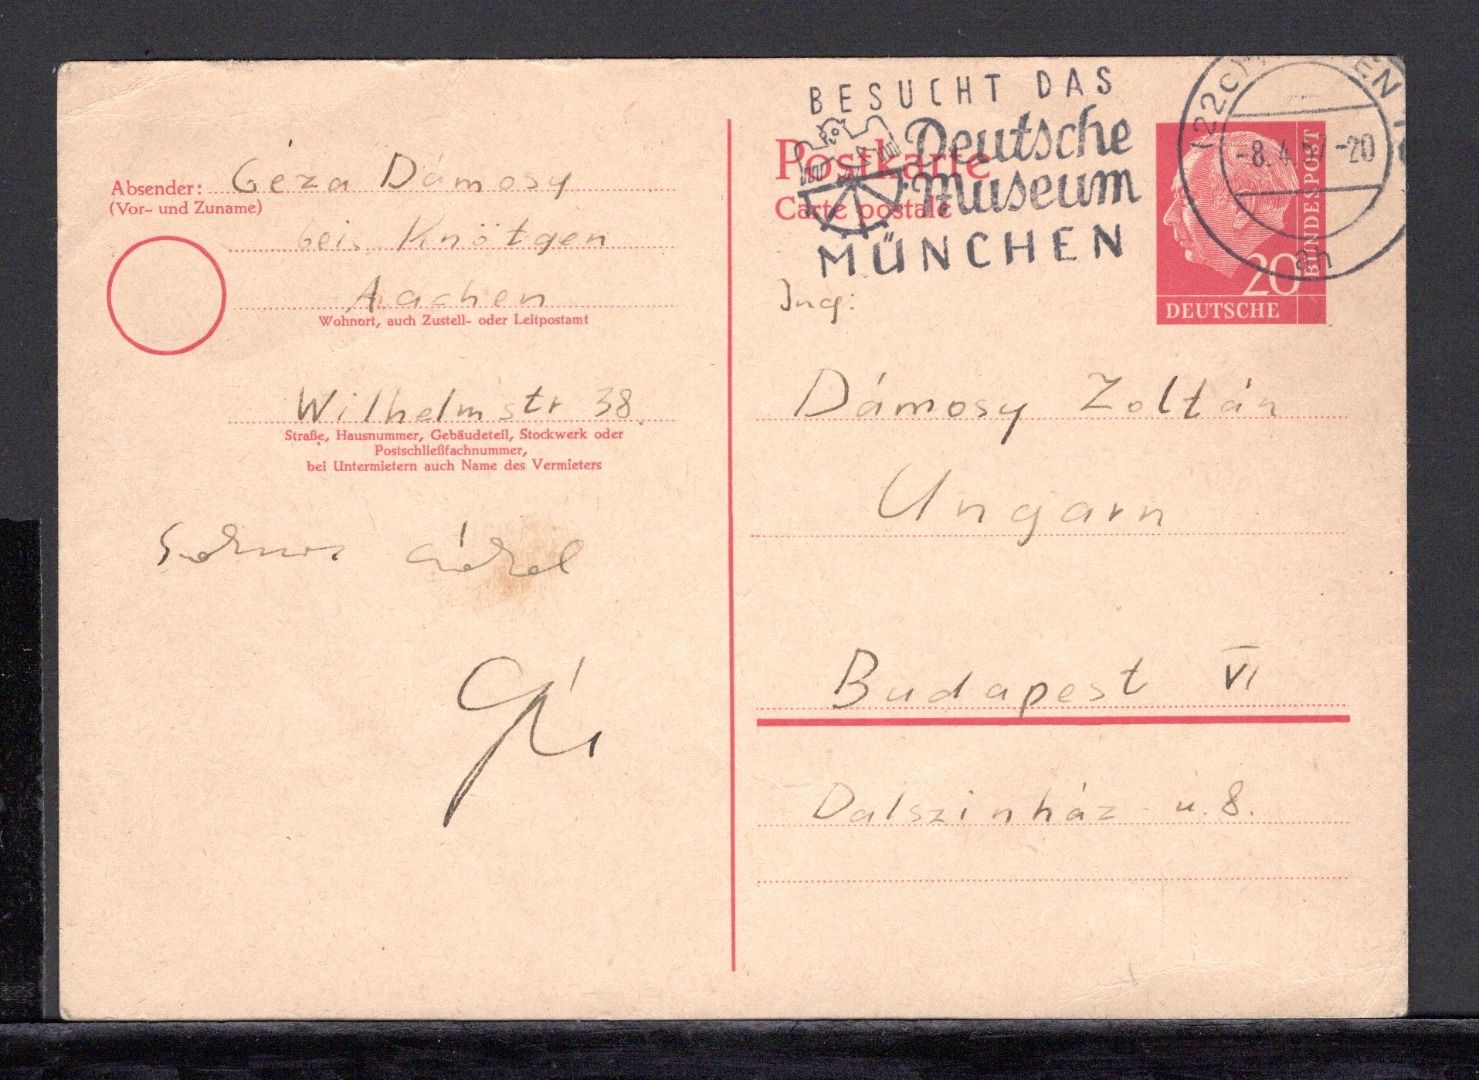 Absender: Géza Dámosy
(Vor- und Zuname)
bei Knötgen
Aachen
Wohnort, auch Zustell- oder Leitpostamt
Wilhelmstr 38.
Straße, Hausnummer, Gebäudeteil, Stockwerk oder
Postschließfachnummer,
bei Untermietern auch Name des Vermieters
BESUCHT DAS
Deutsche
Museum
MÜNCHEN
Postkarte
Carte postale
(22c)
-8. 4. -20
ah
20
DEUTSCHE
BUNDESPOST
Ing:
Dámosy Zoltán
Ungarn
Budapest VI
Dalszinház u. 8.